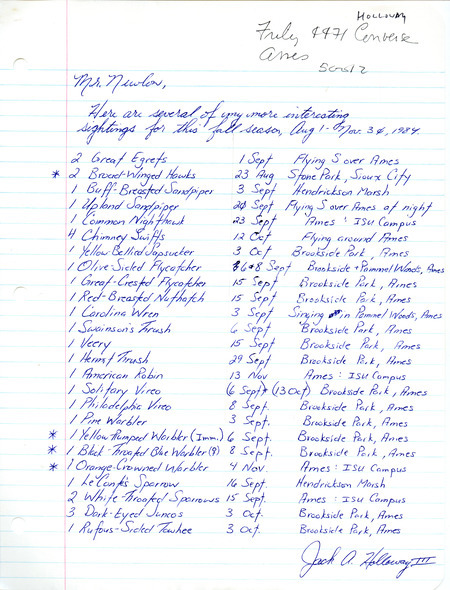 HOLLOWAY
4471 Converse
Ames
50012
Mr. Newlon,
Here are several of my more interesting
sightings for this fall season, Aug 1 - Nov. 30, 1984
2 Great Egrets 1 Sept Flying S over Ames
* 2 Broad-Winged Hawks 23 Aug Stone Park, Sioux City
1 Buff-Breasted Sandpiper 3 Sept Hendrickson Marsh
1 Upland Sandpiper Sept Flying S over Ames at night
1 Common Nighthawk 23 Sept Ames : ISU Campus
4 Chimney Swifts 12 Oct Flying around Ames
1 Yellow-Bellied Sapsucker 3 Oct Brookside Park, Ames
1 Olive-Sided Flycatcher 6+8 Sept Brookside + Pammel Woods, Ames
1 Great-Crested Flycatcher 15 Sept Brookside Park, Ames
1 Red-Breasted Nuthatch 15 Sept Brookside Park, Ames
1 Carolina Wren 3 Sept Singing in Pammel Woods, Ames
1 Swainson's Thrush 6 Sept Brookside Park, Ames
1 Veery 15 Sept Brookside Park, Ames
1 Hermit Thrush 29 Sept Brookside Park, Ames
1 American Robin 13 Nov Ames : ISU Campus
1 Solitary Vireo (6 Sept + (13 Oct) Brookside Park, Ames
1 Philadelphia Vireo 8 Sept. Brookside Park, Ames
1 Pine Warbler 3 Sept. Brookside Park, Ames
* 1 Yellow-Rumped Warbler (Imm.) 6 Sept. Brookside Park, Ames
* 1 Black-Throated Blue Warbler (♀) 8 Sept. Brookside Park, Ames
* 1 Orange-Crowned Warbler 4 Nov. Ames : ISU Campus
1 LeConte's Sparrow 16 Sept. Hendrickson Marsh
2 White-Throated Sparrows 15 Sept. Ames : ISU Campus
3 Dark-Eyed Juncos 3 Oct. Brookside Park, Ames
1 Rufous-Sided Towhee 3 Oct. Brookside Park, Ames
Jack A. Holloway III